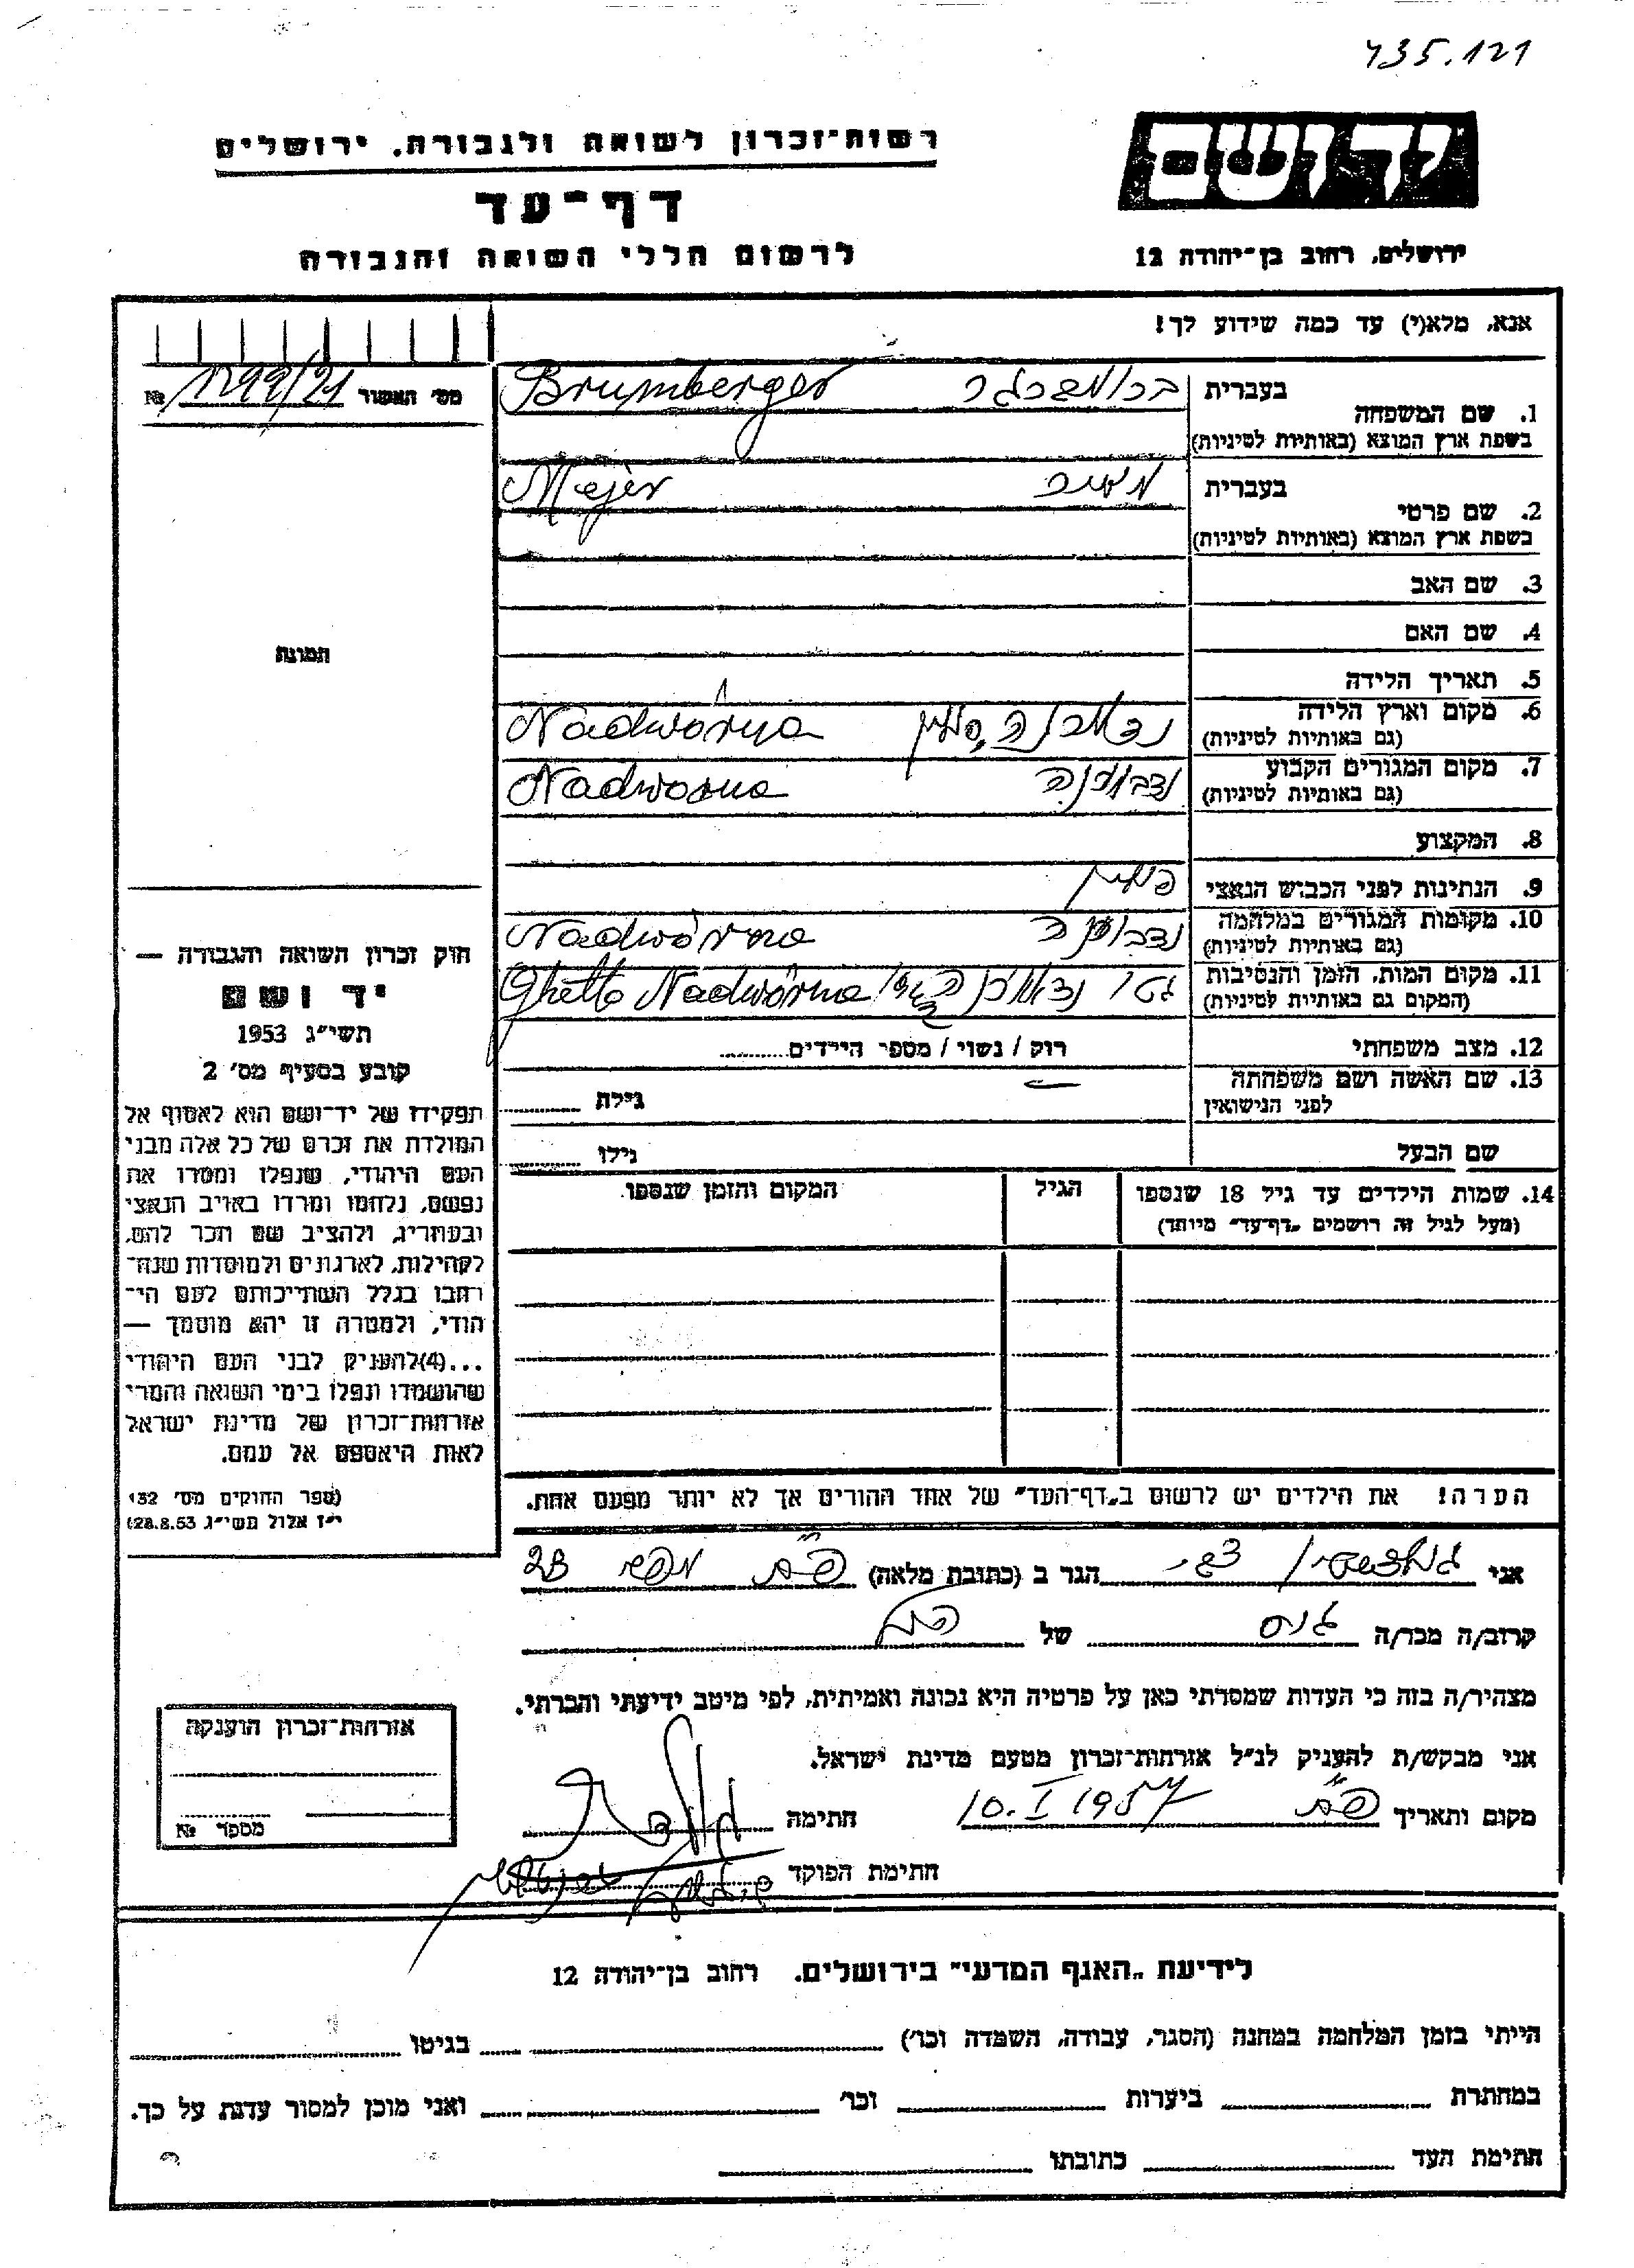 435.121
ידושם
רשות־זכרון לשואה ולגבורה, ירושלים
דף־עד
לרשום חללי השואה והגבורה
ירושלים, רחוב בן־יהודה 12
אנא, מלא(י) עד כמה שידוע לך!
מס׳ האשור № 1799/21
בעברית ברומברגר Brumberger
1. שם המשפחה
בשפת ארץ המוצא (באותיות לטיניות)
בעברית מאיר Majer
2. שם פרטי
בשפת ארץ המוצא (באותיות לטיניות)
3. שם האב
4. שם האם
5. תאריך הלידה
6. מקום וארץ הלידה נדוורנה, פולין Nadwórna
(גם באותיות לטיניות)
7. מקום המגורים הקבוע נדבורנה Nadworna
(גם באותיות לטיניות)
8. המקצוע
9. הנתינות לפני הכבוש הנאצי פולין
10. מקומות המגורים במלחמה נדבורנה Nadwórna
(גם באותיות לטיניות)
11. מקום המות, הזמן והנסיבות גטו נדוורנה Ghetto Nadwórna
(המקום גם באותיות לטיניות)
12. מצב משפחתי רוק / נשוי / מספר הילדים
13. שם האשה ושם משפחתה
לפני הנישואין גילה
שם הבעל גילו
14. שמות הילדים עד גיל 18 שנספו הגיל המקום והזמן שנספו
(מעל לגיל זה רושמים „דף־עד" מיוחד)
הערה! את הילדים יש לרשום ב„דף־העד" של אחד ההורים אך לא יותר מפעם אחת.
תמונה
חוק זכרון השואה והגבורה —
יד ושם
תשי״ג 1953
קובע בסעיף מס׳ 2
תפקידו של יד־ושם הוא לאסוף אל
המולדת את זכרם של כל אלה מבני
העם היהודי, שנפלו ומסרו את
נפשם, נלחמו ומרדו באויב הנאצי
ובעוזריו, ולהציב שם וזכר להם,
לקהילות, לארגונים ולמוסדות שנח־
רבו בגלל השתייכותם לעם הי־
הודי, ולמטרה זו יהא מוסמך —
...(4) להעניק לבני העם היהודי
שהושמדו ונפלו בימי השואה והמרי
אזרחות־זכרון של מדינת ישראל
לאות היאספם אל עמם.
(ספר החוקים מס׳ 132
י״ז אלול תשי״ג 28.8.53)
אני צבי הגר ב (כתובת מלאה) פ״ת 23
קרוב/ה מכר/ה גיס של הנ״ל
מצהיר/ה בזה כי העדות שמסרתי כאן על פרטיה היא נכונה ואמיתית, לפי מיטב ידיעתי והכרתי.
אני מבקש/ת להעניק לנ״ל אזרחות־זכרון מטעם מדינת ישראל.
מקום ותאריך פ״ת 10.I 1957 חתימה
חתימת הפוקד
אזרחות־זכרון הוענקה
מספר №
לידיעת „האגף המדעי" בירושלים. רחוב בן־יהודה 12
הייתי בזמן המלחמה במחנה (הסגר, עבודה, השמדה וכו׳) בגיטו
במחתרת ביערות וכו׳ ואני מוכן למסור עדות על כך.
חתימת העד כתובתו